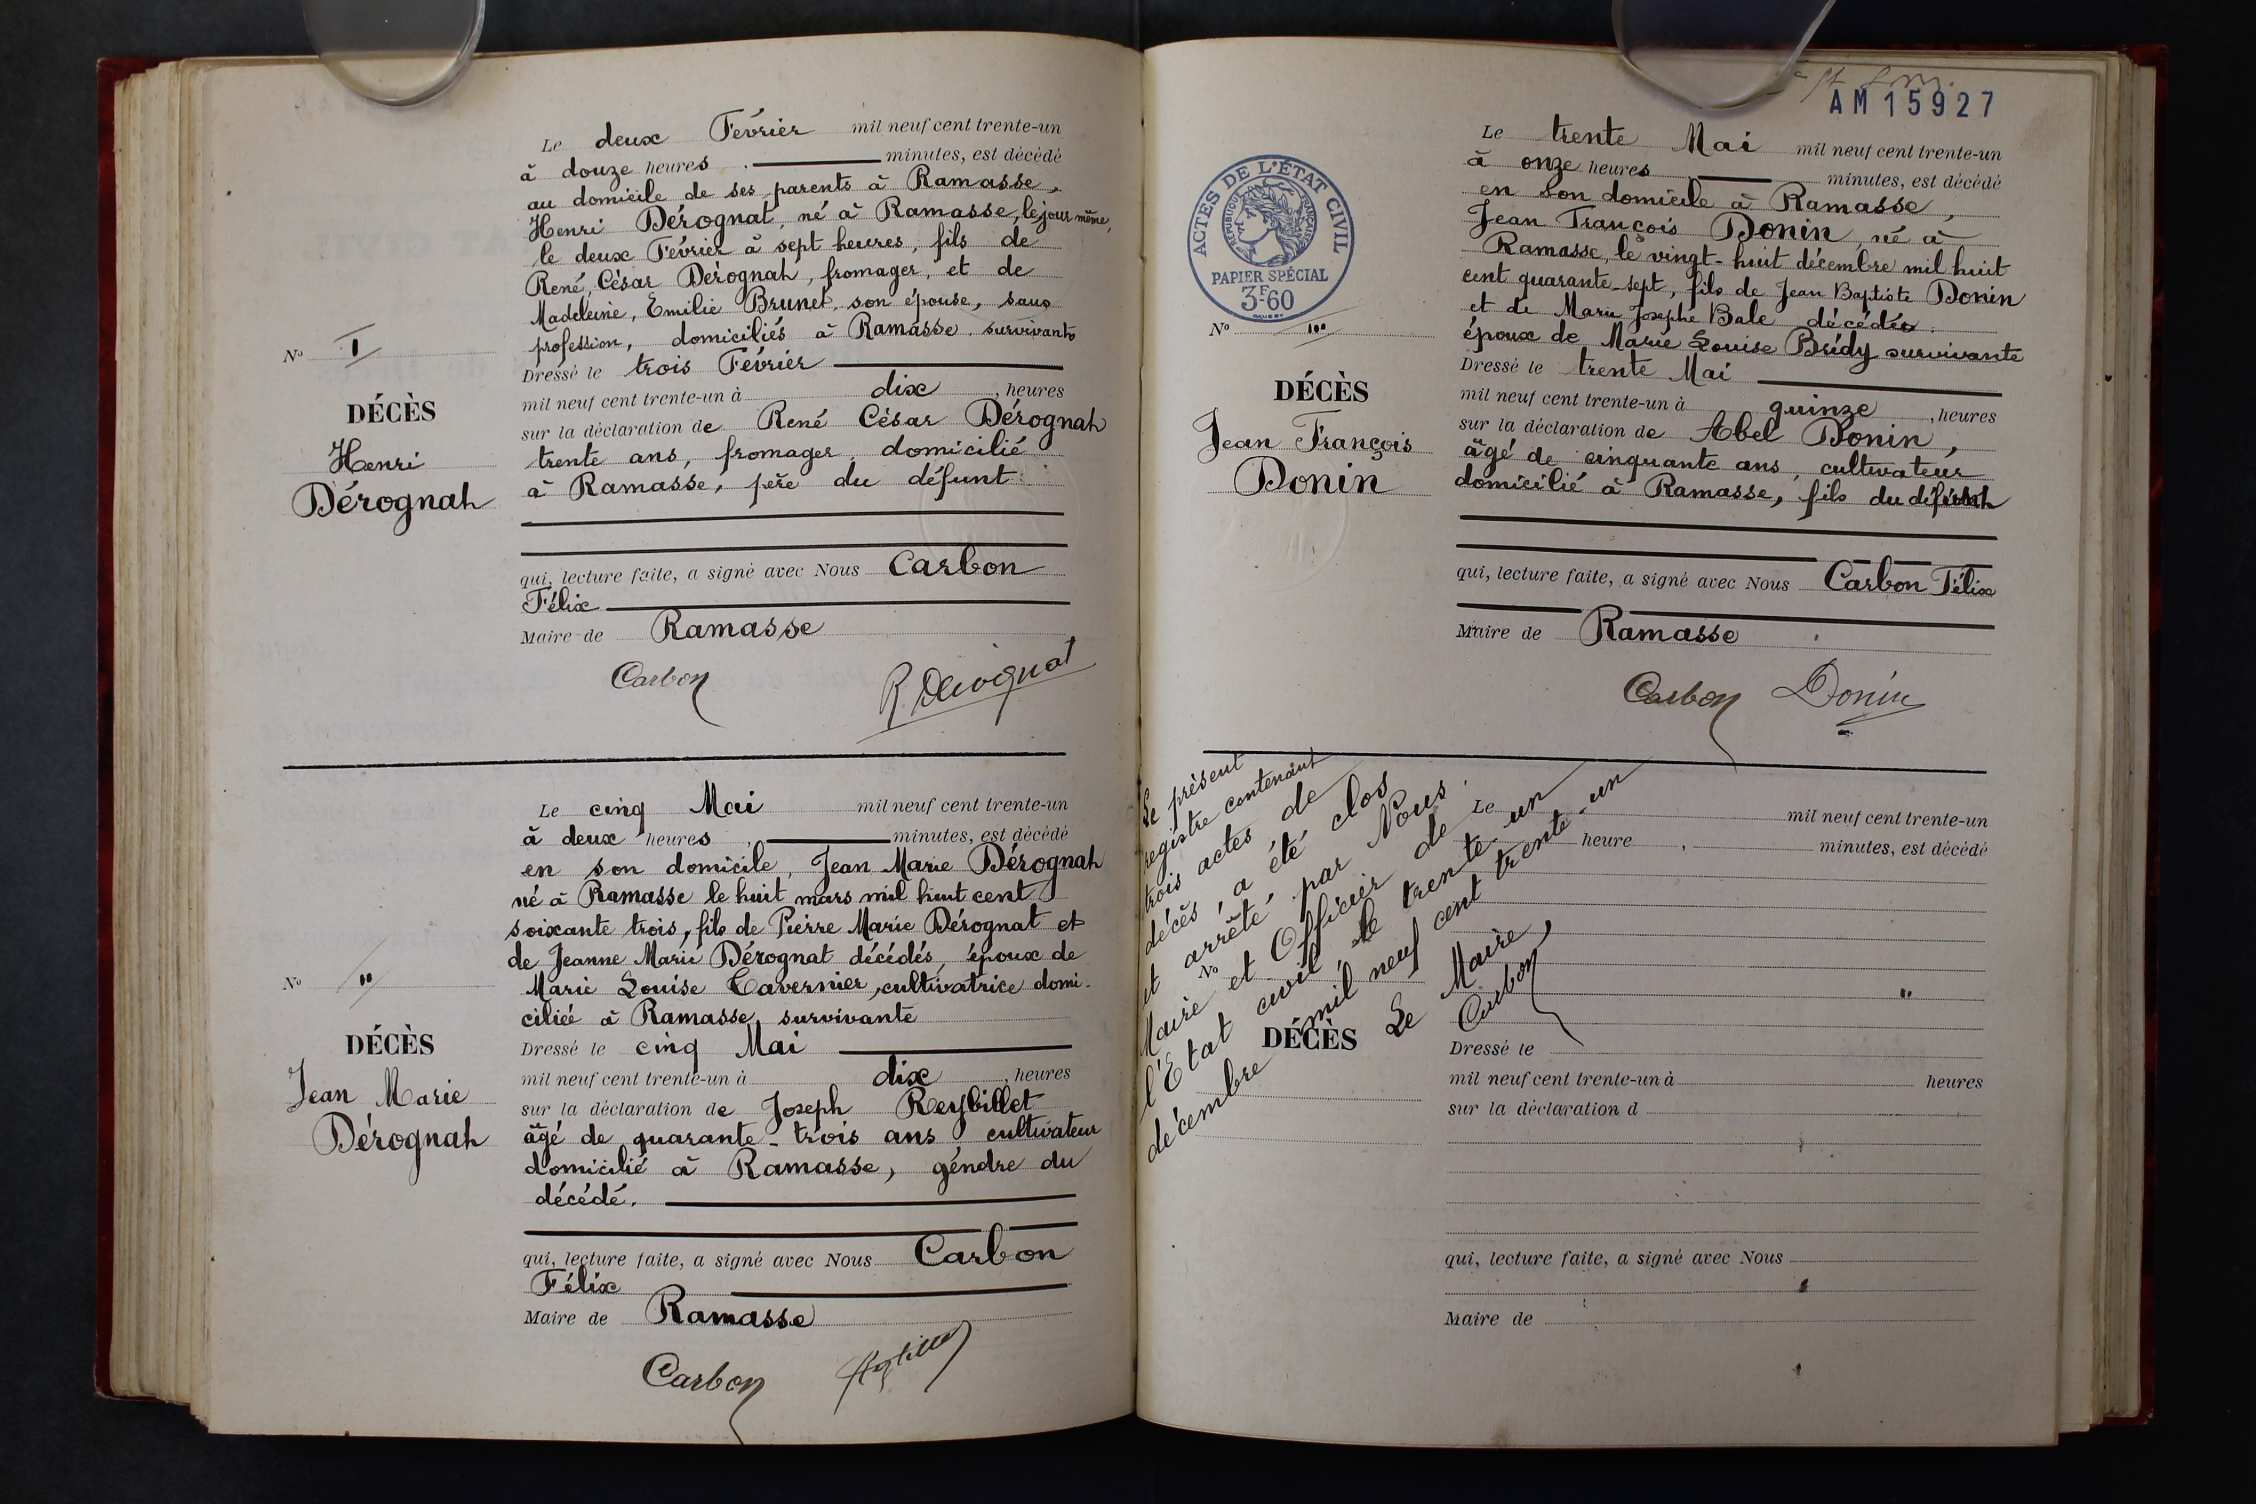 Le deux Février mil neuf cent trente-un
à douze heures . minutes, est décédé
au domicile de ses parents à Ramasse,
Henri Dérognat, né à Ramasse, le jour même,
le deux Février à sept heures, fils de
René, César Dérognat, fromager, et de
Madeleine, Emilie Brunet son épouse, sans
profession, domiciliés à Ramasse survivants
N° 1
Dressé le trois Février
mil neuf cent trente-un à dix , heures
DÉCÈS
sur la déclaration de René César Dérognat
Henri
trente ans, fromager, domicilié
Dérognat
à Ramasse, père du défunt
qui, lecture faite, a signé avec Nous Carbon
Félix
Maire de Ramasse
Carbon R. Dérognat
Le cinq Mai mil neuf cent trente-un
à deux heures , minutes, est décédé
en son domicile, Jean Marie Dérognat
né à Ramasse le huit mars mil huit cent
soixante trois, fils de Pierre Marie Dérognat et
de Jeanne Marie Dérognat décédés, époux de
N° "
Marie Louise Tavernier, cultivatrice domi-
ciliée à Ramasse, survivante
DÉCÈS
Dressé le cinq Mai
mil neuf cent trente-un à dix , heures
Jean Marie
sur la déclaration de Joseph Reybillet
Dérognat
âgé de quarante-trois ans cultivateur
domicilié à Ramasse, gendre du
décédé.
qui, lecture faite, a signé avec Nous Carbon
Félix
Maire de Ramasse
Carbon
AM 15927
ACTES DE L'ÉTAT CIVIL
RÉPUBLIQUE FRANÇAISE
PAPIER SPÉCIAL
3F60
Le trente Mai mil neuf cent trente-un
à onze heures minutes, est décédé
en son domicile à Ramasse,
Jean François Donin, né à
Ramasse, le vingt-huit décembre mil huit
cent quarante-sept, fils de Jean Baptiste Donin
et de Marie Josephe Bale décédés.
N° "'
époux de Marie Louise Brédy survivante
Dressé le trente Mai
DÉCÈS
mil neuf cent trente-un à quinze , heures
Jean François
sur la déclaration de Abel Donin,
Donin
âgé de cinquante ans, cultivateur
domicilié à Ramasse, fils du défunt
qui, lecture faite, a signé avec Nous Carbon Félix
Maire de Ramasse
Carbon Donin
Le présent
registre contenant
trois actes de
décès, a été clos
et arrêté, par Nous
Maire et Officier de
l'Etat civil, le trente-un
décembre mil neuf cent trente-un
Le Maire,
Carbon
Le mil neuf cent trente-un
heure , minutes, est décédé
N°
DÉCÈS
Dressé le
mil neuf cent trente-un à heures
sur la déclaration d
qui, lecture faite, a signé avec Nous
Maire de